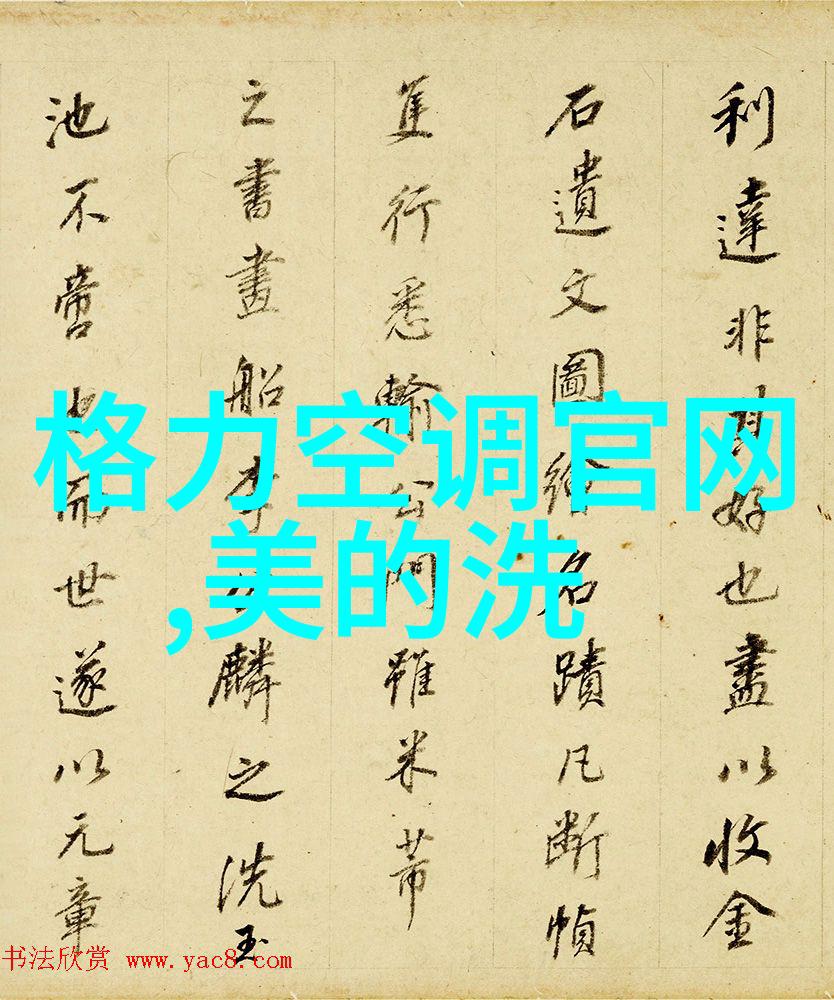 利達非好也盡以收金
石遺文圖繪名蹟凡斷幀
隻行悉輸公門雖米芾
之書畫船李公麟之洗玉
池不啻也而世遂以元章
格力空调官网
,美的洗
书法欣赏 www.yac8.com